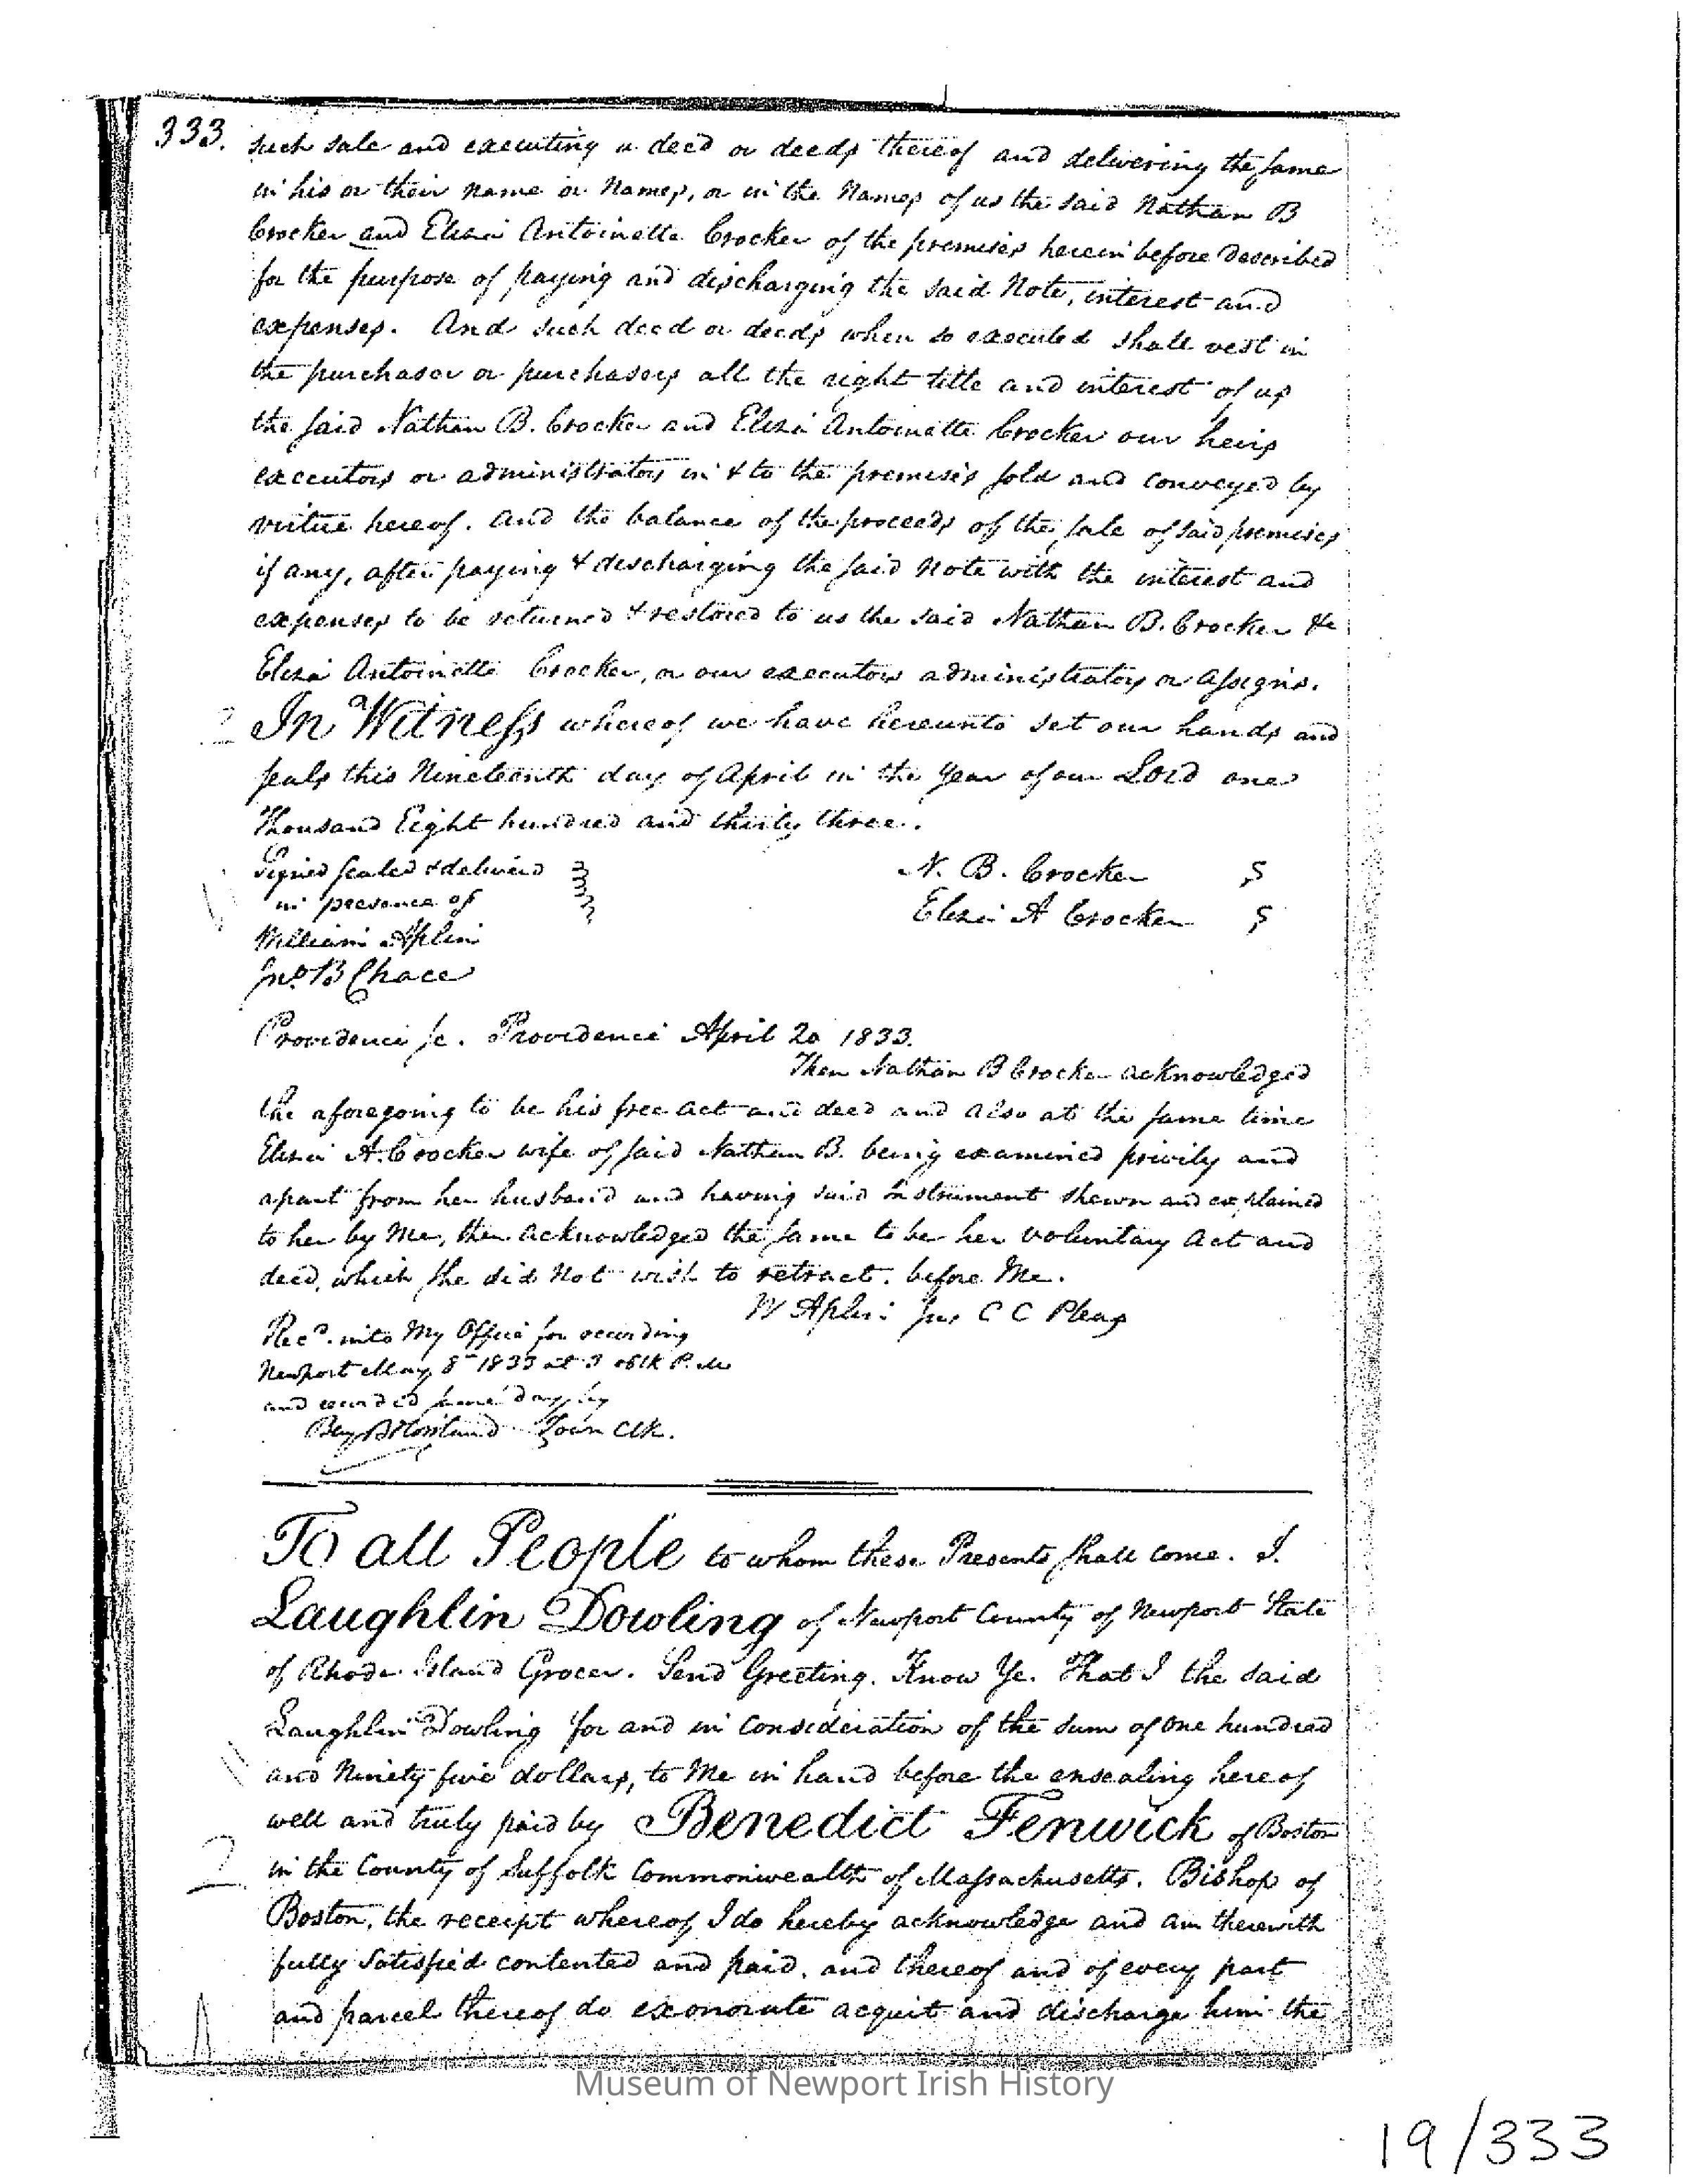 333.
such sale and executing a deed or deeds thereof and delivering the same
in his or their name or Names, or in the Names of us the said Nathan B
Crocker and Eliza Antoinette Crocker of the premises herein before described
for the purpose of paying and discharging the said Note, interest and
expenses. And such deed or deeds when so executed shall vest in
the purchaser or purchasers all the right title and interest of us
the said Nathan B. Crocker and Eliza Antoinette Crocker our heirs
executors or administrators in & to the premises sold and conveyed by
virtue hereof. And the balance of the proceeds of the sale of said premises
if any, after paying & discharging the said Note with the interest and
expenses to be returned & restored to us the said Nathan B. Crocker &
Eliza Antoinette Crocker, or our executors administrators or assigns.
In Witness whereof we have hereunto set our hands and
seals this Nineteenth day of April in the Year of our Lord one
Thousand Eight hundred and thirty three.
Signed sealed & delivered N. B. Crocker S
in presence of Eliza A Crocker S
William Aplin
Jno. B Chace
Providence sc. Providence April 20 1833.
Then Nathan B Crocker acknowledged
the aforegoing to be his free act and deed and also at the same time
Eliza A. Crocker wife of said Nathan B. being examined privily and
apart from her husband and having said instrument shewn and explained
to her by Me, then acknowledged the same to be her voluntary act and
deed, which she did Not wish to retract. before Me.
W Aplin Jus C C Pleas
Recd. into My Office for recording
Newport May 8th 1833 at 3 oClk P.M
and recorded same day, by
B B Howland Town Clk.
To all People to whom these Presents shall come. I.
Laughlin Dowling of Newport County of Newport State
of Rhode Island Grocer. Send Greeting. Know Ye. That I the said
Laughlin Dowling for and in consideration of the sum of one hundred
and Ninety five dollars, to Me in hand before the ensealing hereof
well and truly paid by Benedict Fenwick of Boston
in the County of Suffolk Commonwealth of Massachusetts. Bishop of
Boston, the receipt whereof I do hereby acknowledge and am therewith
fully satisfied contented and paid, and thereof and of every part
and parcel thereof do exonorate acquit and discharge him the
Museum of Newport Irish History
19/333